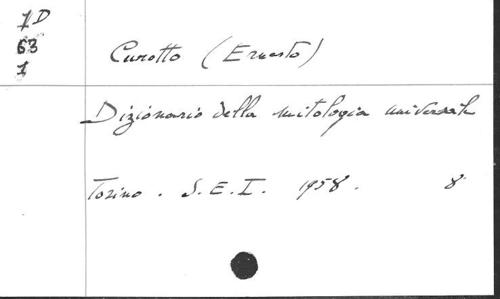 7D
63
1
Curotto (Ernesto)
Dizionario della mitologia universale
Torino . S. E. I. 1958 . 8